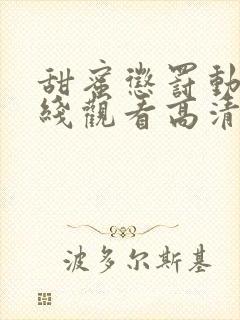 甜蜜懲罰動
綫觀看高清
波多尔斯基